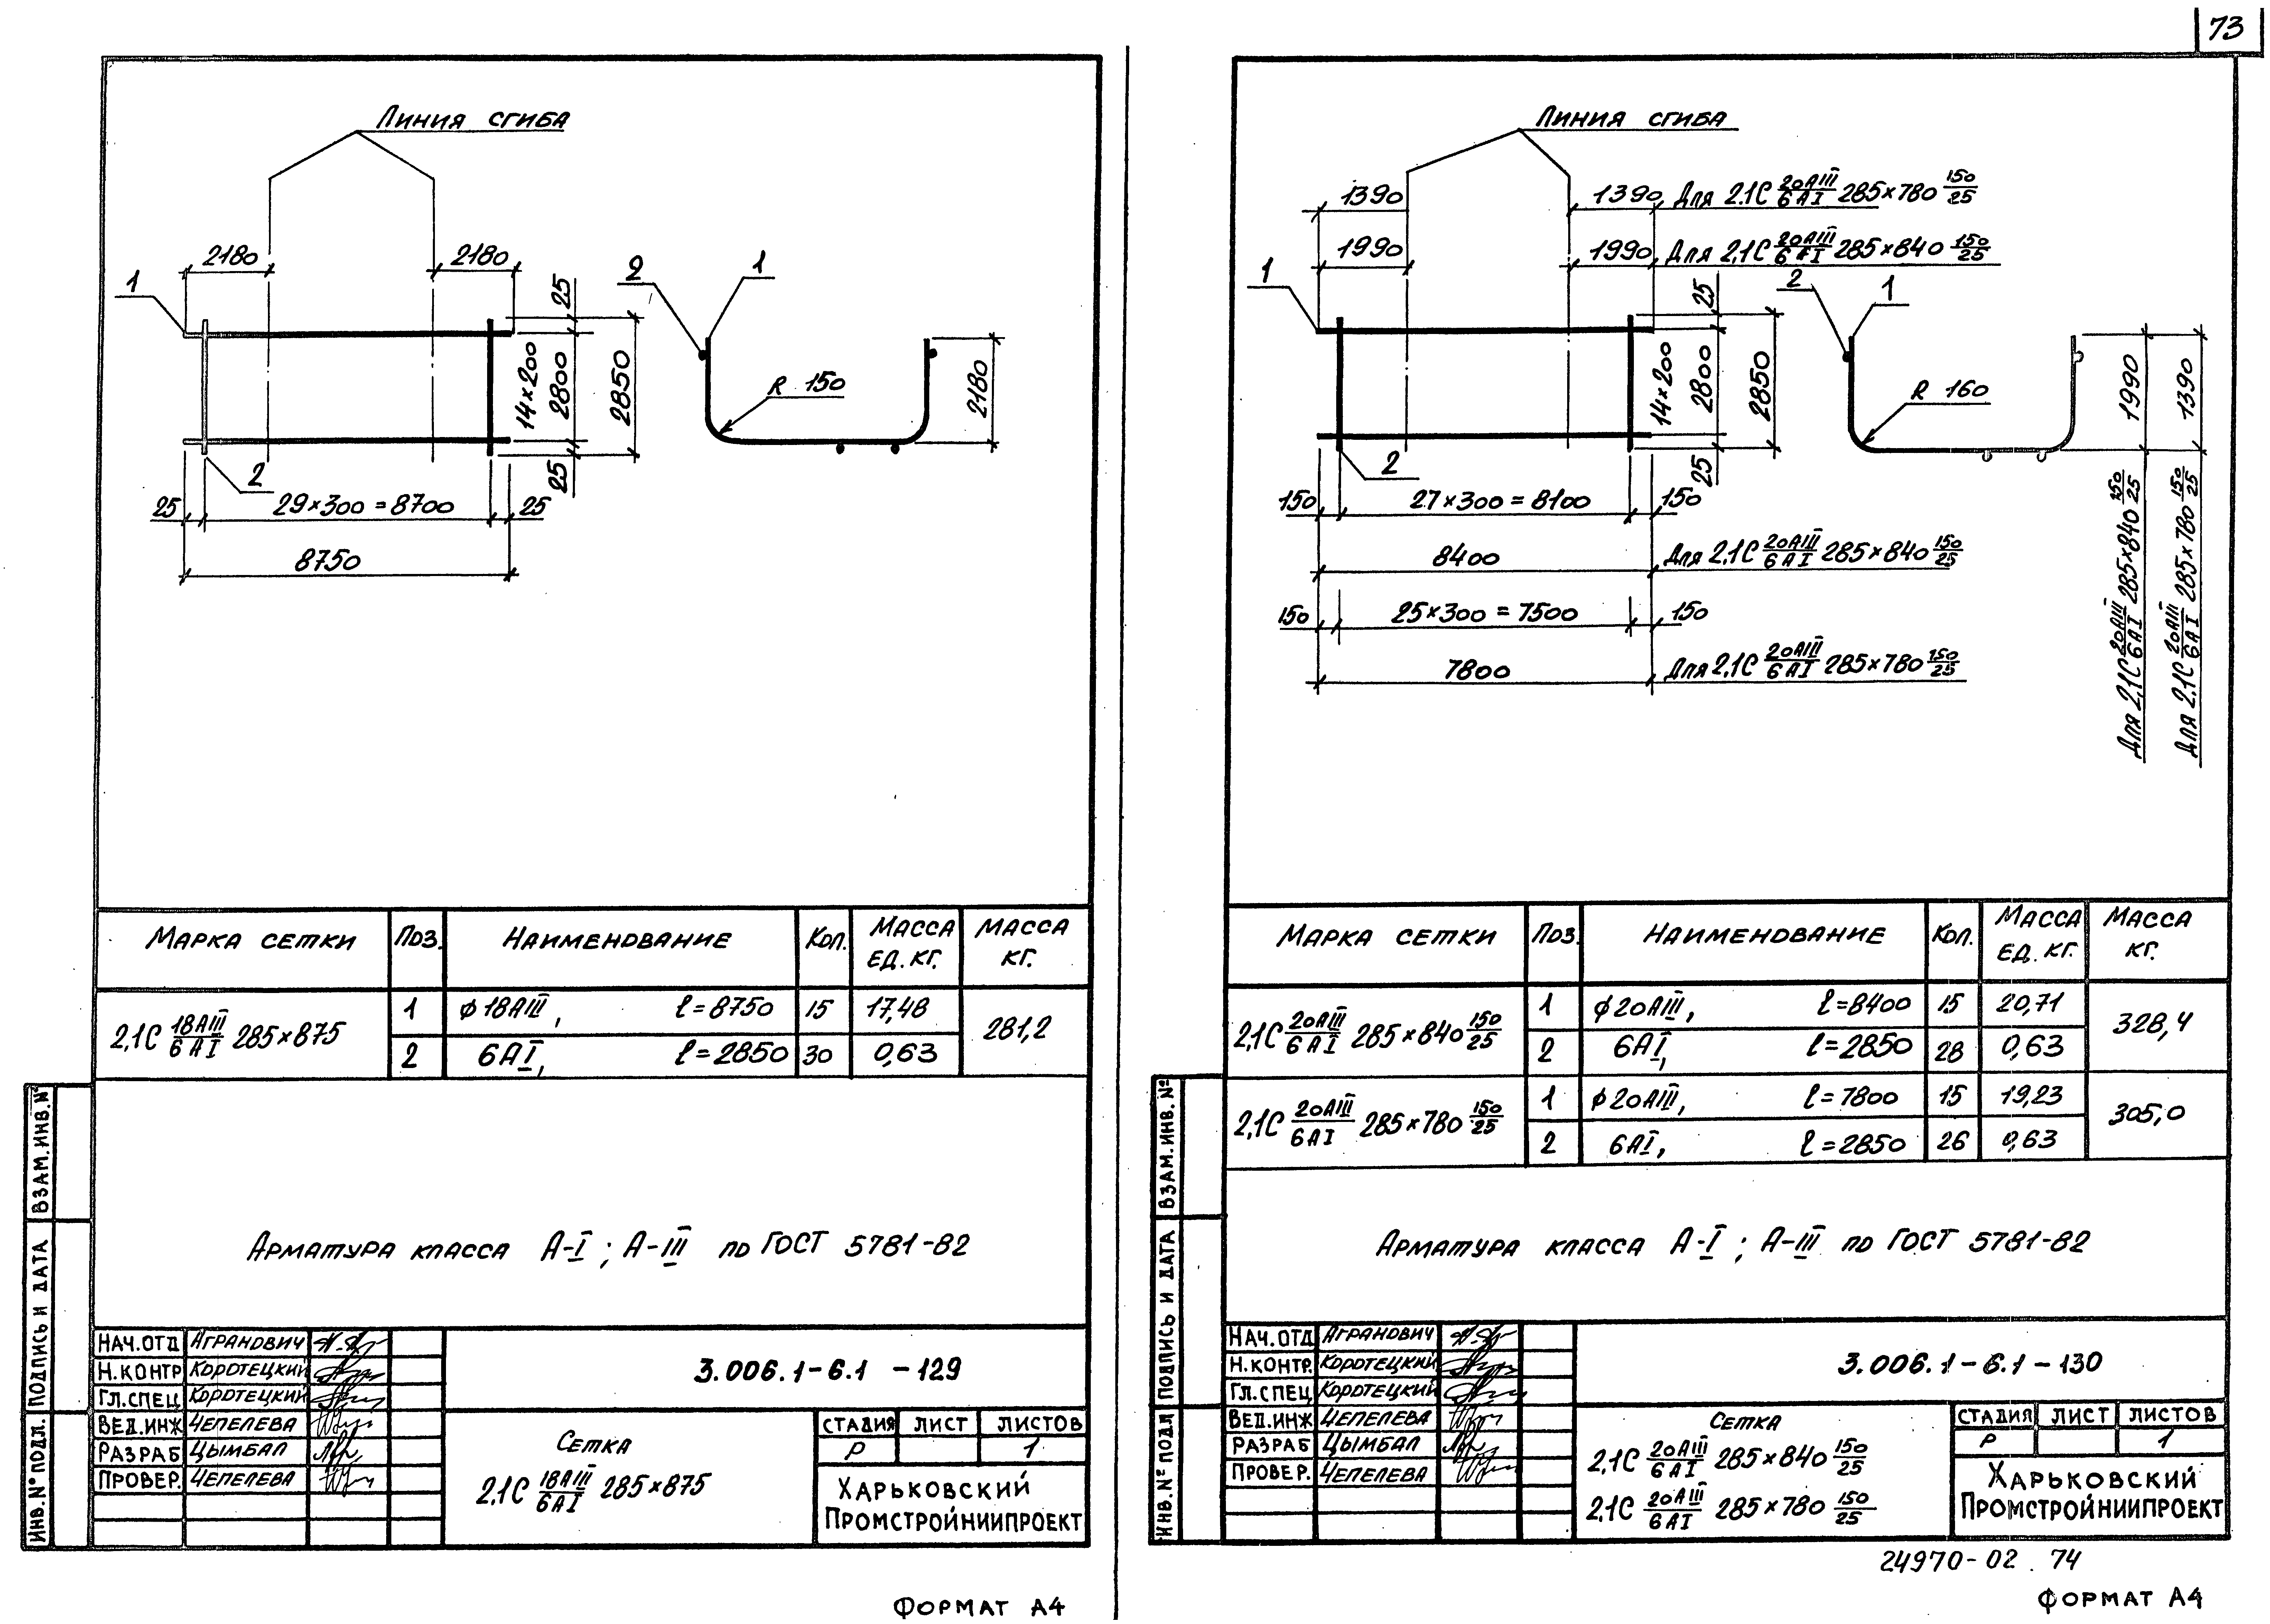 73
Линия сгиба
2180
2180
1
2
1
25
14×200
2800
2850
25
R 150
2180
2
25
29×300=8700
25
8750
Марка сетки Поз. Наименование Кол. Масса ед. кг. Масса кг.
2,1С 18АIII/6АI 285×875
1 ф18АIII, ℓ=8750 15 17,48
281,2
2 6АI, ℓ=2850 30 0,63
Арматура класса А-I; А-III по ГОСТ 5781-82
ВЗАМ.ИНВ.№
ПОДПИСЬ И ДАТА
ИНВ.№ ПОДЛ.
НАЧ.ОТД АГРАНОВИЧ
Н.КОНТР КОРОТЕЦКИЙ
ГЛ.СПЕЦ КОРОТЕЦКИЙ
ВЕД.ИНЖ ЧЕПЕЛЕВА
РАЗРАБ ЦЫМБАЛ
ПРОВЕР. ЧЕПЕЛЕВА
3.006.1-6.1 -129
Сетка
2,1С 18АIII/6АI 285×875
СТАДИЯ ЛИСТ ЛИСТОВ
Р 1
ХАРЬКОВСКИЙ
ПРОМСТРОЙНИИПРОЕКТ
ФОРМАТ А4
Линия сгиба
1390
1390 Для 2.1С 20АIII/6АI 285×780 150/25
1990
1990 Для 2,1С 20АIII/6АI 285×840 150/25
1
2
1
25
14×200
2800
2850
25
R 160
1990
1390
Для 2,1С 20АIII/6АI 285×840 150/25
Для 2.1С 20АIII/6АI 285×780 150/25
2
150
27×300=8100
150
8400 Для 2,1С 20АIII/6АI 285×840 150/25
150
25×300=7500
150
7800 Для 2,1С 20АIII/6АI 285×780 150/25
Марка сетки Поз. Наименование Кол. Масса ед. кг. Масса кг.
2,1С 20АIII/6АI 285×840 150/25
1 ф20АIII, ℓ=8400 15 20,71
328,4
2 6АI, ℓ=2850 28 0,63
2,1С 20АIII/6АI 285×780 150/25
1 ф20АIII, ℓ=7800 15 19,23
305,0
2 6АI, ℓ=2850 26 0,63
Арматура класса А-I; А-III по ГОСТ 5781-82
ВЗАМ.ИНВ.№
ПОДПИСЬ И ДАТА
ИНВ.№ ПОДЛ
НАЧ.ОТД АГРАНОВИЧ
Н.КОНТР. КОРОТЕЦКИЙ
ГЛ.СПЕЦ КОРОТЕЦКИЙ
ВЕД.ИНЖ ЧЕПЕЛЕВА
РАЗРАБ ЦЫМБАЛ
ПРОВЕР. ЧЕПЕЛЕВА
3.006.1-6.1-130
Сетка
2,1С 20АIII/6АI 285×840 150/25
2,1С 20АIII/6АI 285×780 150/25
СТАДИЯ ЛИСТ ЛИСТОВ
Р 1
ХАРЬКОВСКИЙ
ПРОМСТРОЙНИИПРОЕКТ
24970-02 74
ФОРМАТ А4